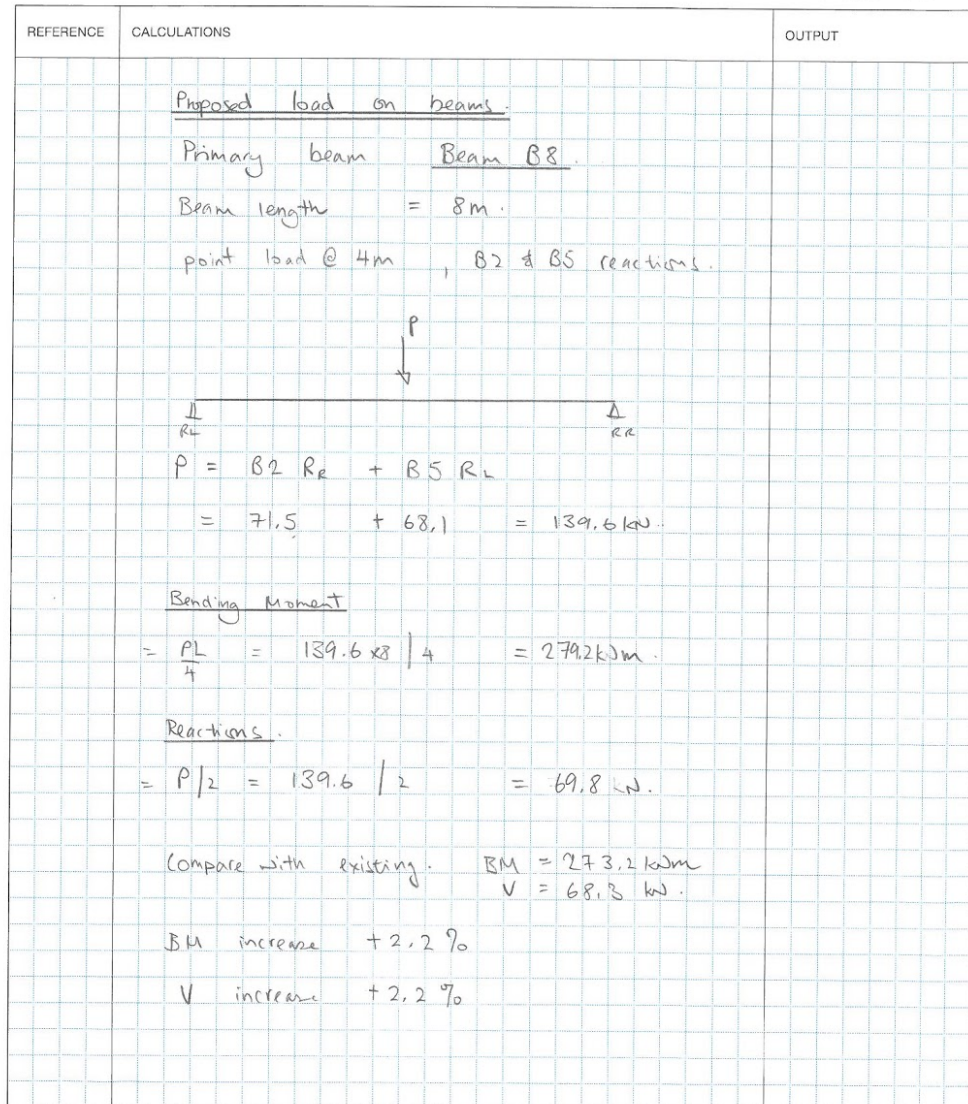 REFERENCE CALCULATIONS OUTPUT
Proposed load on beams.
Primary beam Beam B8.
Beam length = 8m.
point load @ 4m , B2 & B5 reactions.
P
RL RR
P = B2 RR + B5 RL
= 71.5 + 68.1 = 139.6 kN.
Bending Moment
= PL/4 = 139.6 x8 / 4 = 279.2kNm.
Reactions.
= P/2 = 139.6 / 2 = 69.8 kN.
Compare with existing. BM = 273.2 kNm
V = 68.3 kN.
BM increase + 2.2 %
V increase + 2.2 %